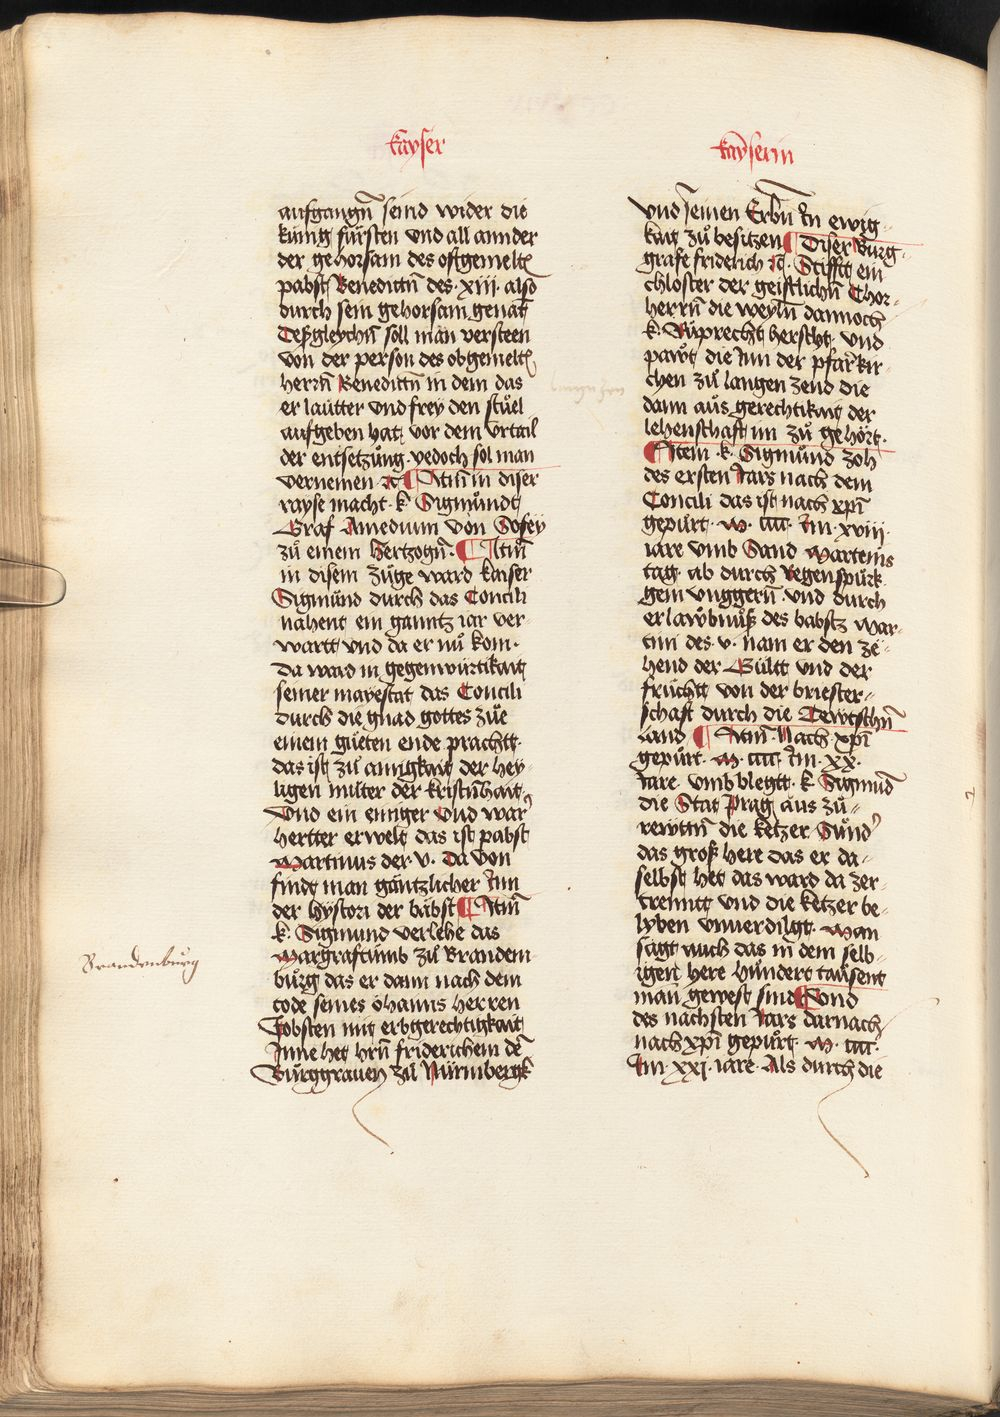 kayser
aufgangn̄ seind wider die
kunig fürsten vnd all annder
der gehorsam des oftgemelt
pabst Benedictn̄ des · xiii · also
durch sein gehorsam genāt
Deßgleychn̄ soll man versteen
von der person des obgemelt
herrn̄ Benedictn̄ in dem das
er lautter vnd frey den stuͦel
aufgeben hat vor dem vrtail
der entsetzung · yedoch sol man
vernemen ꝛc ¶ Itm̄ in diser
rayse macht · k · Sigmuͦndt
Graf Amedium von Sofey
zuͦ einem hertzogn̄ · ¶ Itm̄
in disem zuge ward kaiser
Sigmund durch das Concili
nahent ein gantz iar ver-
wartt vnd da er nuͦ kom ·
Da ward in gegenwürtikait
seiner mayestat das Concili
durch die gnad gottes zuͦe
einem guͦeten ende prachtt ·
das ist zuͦ ainigkait der hey-
ligen muter der kristn̄hait ·
Vnd ein einiger vnd war
hertter erwelt das ist pabst
Martinus der · v · Da von
findt man gäntzlicher Inn
der hystori der bäbst ¶ Itm̄
k · Sigmund verlehe das
Margraftumb zuͦ Branden-
buͦrg das er dann nach dem
tode seines öhanns herren
Jobsten mit erbgerechtigkait
Inne het hrn̄ friderichem dē
Burggrauen zuͦ Nürmbergk
Brandenburg
kaẏserin
vnd seinen Erbn̄ In ewig-
kait zuͦ besitzen ¶ Diser Burg-
grafe friderich ꝛc · Stifftt ein
chloster der geistlichn̄ Chor-
herrn̄ die weyln̄ dannoch
k · Ruprecht herscht · vnd
pawt die Inn der pfarkir-
chen zuͦ langen zend die
dann aus gerechtikait der
lehenschaft im zuͦ gehört ·
¶ Item · k · Sigmuͦnd zoh
des ersten Jars nach dem
Concili das ist nach xp̄i
gepurt · M · cccc · Im · xviii ·
iare vmb Sand Marteins
tag · ab durch Regenspurk
gein vnggern̄ · vnd durch
erlawbnuͦß des babsts Mar-
tini des · v · nam er den ze-
hend der Gültt vnd der
früchtt von der briester-
schaft durch die Tewtschn̄
Land ¶ Itm̄ Nach xp̄i
gepuͦrt · M · cccc · Im · XX ·
Jare · vmb legtt · k · Sigmund
die Stat Prag aus zuͦ-
rewttn̄ die ketzer Suͦnd
das groß here das er da-
selbst het das ward da zer-
trenntt vnd die ketzer be-
lyben vnuerdilgt · Man
sagt auch das in dem selb-
igen here hundert tausent
man gewest sind ¶ Vnd
des nachsten Jars darnach
nach xp̄i gepuͦrt · M · cccc ·
Im · XXI · iare · Als durch die